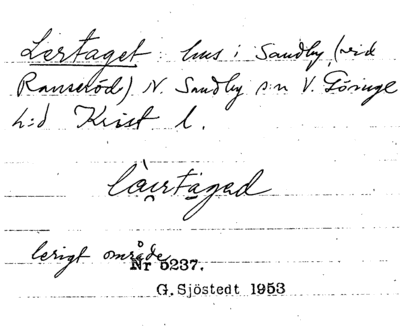 Lertaget: hus i Sandby (vid
Ranseröd) N. Sandby s:n V. Göinge
h:d Krist l.
làirtagad
lerigt område
Nr 5237.
G. Sjöstedt 1953